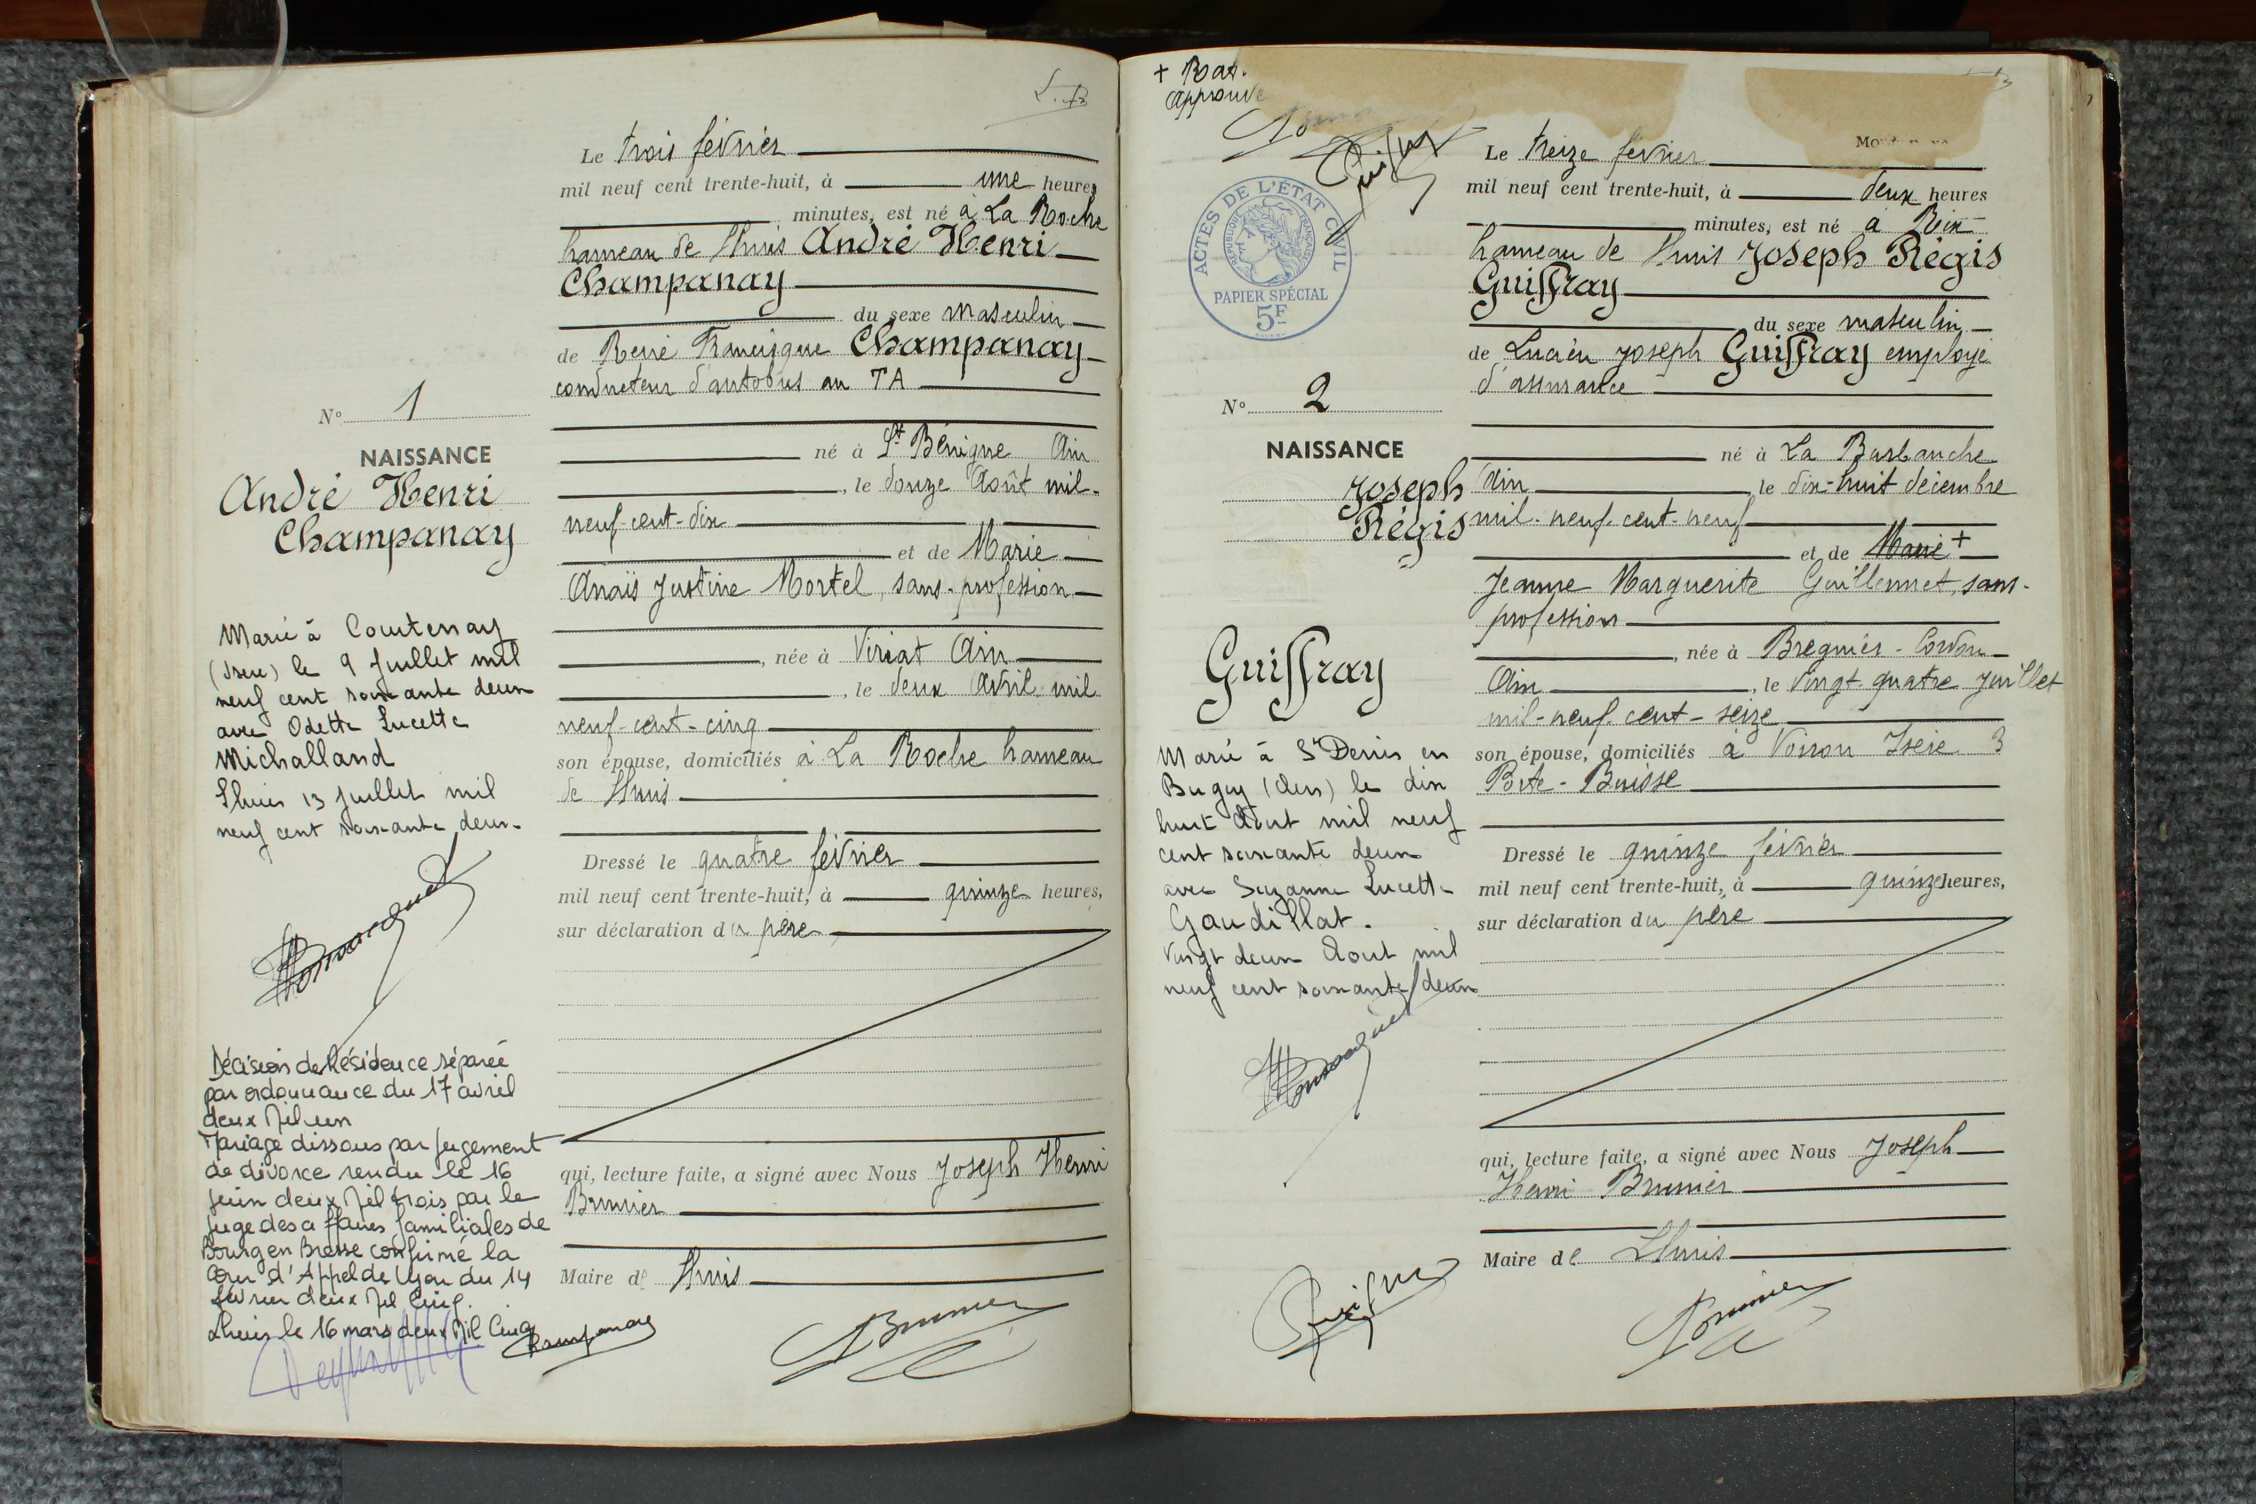 Le trois février
mil neuf cent trente-huit, à une heures
minutes, est né à La Roche
hameau de Lhuis André Henri
Champanay
du sexe masculin
de René Francisque Champanay
conducteur d'autobus au TA
né à St Bénigne Ain
, le douze Août mil-
neuf-cent-dix
et de Marie
Anaïs Justine Mortel, sans-profession
, née à Viriat Ain
, le deux Avril mil
neuf-cent-cinq
son épouse, domiciliés à La Roche hameau
de Lhuis
Dressé le quatre février
mil neuf cent trente-huit, à quinze heures,
sur déclaration du père
qui, lecture faite, a signé avec Nous Joseph Henri
Brunier
Maire de Lhuis
Champanay
Brunier
N° 1
NAISSANCE
André Henri
Champanay
Marié à Courtenay
(Isère) le 9 Juillet mil
neuf cent soixante deux
avec Odette Lucette
Michalland
Lhuis 13 juillet mil
neuf cent soixante deux.
Décision de Résidence séparée
par ordonnance du 17 avril
deux Mil un
Mariage dissous par jugement
de divorce rendu le 16
juin deux Mil trois par le
juge des affaires familiales de
Bourg en Bresse confirmé la
Cour d'Appel de Lyon du 14
février deux Mil Cinq.
Lhuis le 16 mars deux Mil Cinq
+ Rat.
Approuvé
ACTES DE L'ÉTAT CIVIL
RÉPUBLIQUE FRANÇAISE
PAPIER SPÉCIAL
5F
Le treize février
mil neuf cent trente-huit, à deux heures
minutes, est né à Rix
hameau de Lhuis Joseph Régis
Guiffray
du sexe masculin
de Lucien Joseph Guiffray employé
d'assurance
né à La Burbanche
Ain le dix-huit décembre
mil-neuf-cent-neuf
et de Marie +
Jeanne Marguerite Guillermet, sans-
profession
, née à Brégnier-Cordon
Ain , le vingt-quatre Juillet
mil-neuf-cent-seize
son épouse, domiciliés à Voiron Isère 3
Porte-Buisse
Dressé le quinze février
mil neuf cent trente-huit, à quinze heures,
sur déclaration du père
qui, lecture faite, a signé avec Nous Joseph
Henri Brunier
Maire de Lhuis
Brunier
N° 2
NAISSANCE
Joseph
Régis
Guiffray
Marié à St Denis en
Bugey (Ain) le dix
huit Aout mil neuf
cent soixante deux
avec Suzanne Lucette
Gaudillat.
Vingt deux Aout mil
neuf cent soixante deux